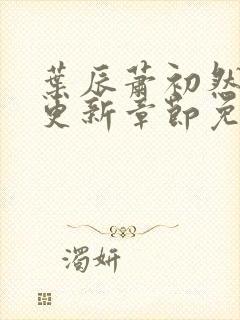 葉辰蕭初然
更新章節免
濁妍